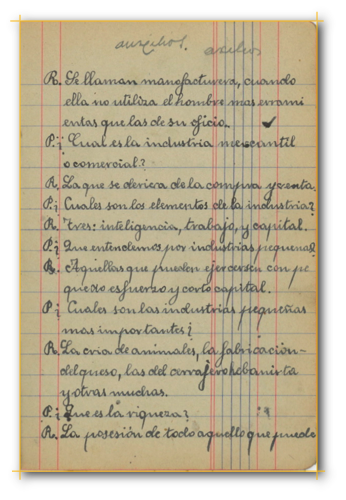 auxilios. axilios
R. Se llaman manofacturera, cuando
ella no utiliza el hombre mas errami
entas que las de su oficio.
P.¿ Cual es la industria mercantil
o comercial?
R. La que se deriera de la compra y venta.
P.¿ Cuales son los elementos de la industria?
R. Tres: inteligencia, trabajo, y capital.
P.¿ Que entendemos por industrias pequeña?
R. Aquellas que pueden ejercersen con pe
quedo esfuerzo y corto capital.
P.¿ Cuales son las industrias pequeñas
mas importantes?
R. La cria de animales, la fabricación
del queso, las del cerrajero hebanirta
y otras muchas.
P.¿ Que es la riqueza?
R. La posesión de todo aquello que puede